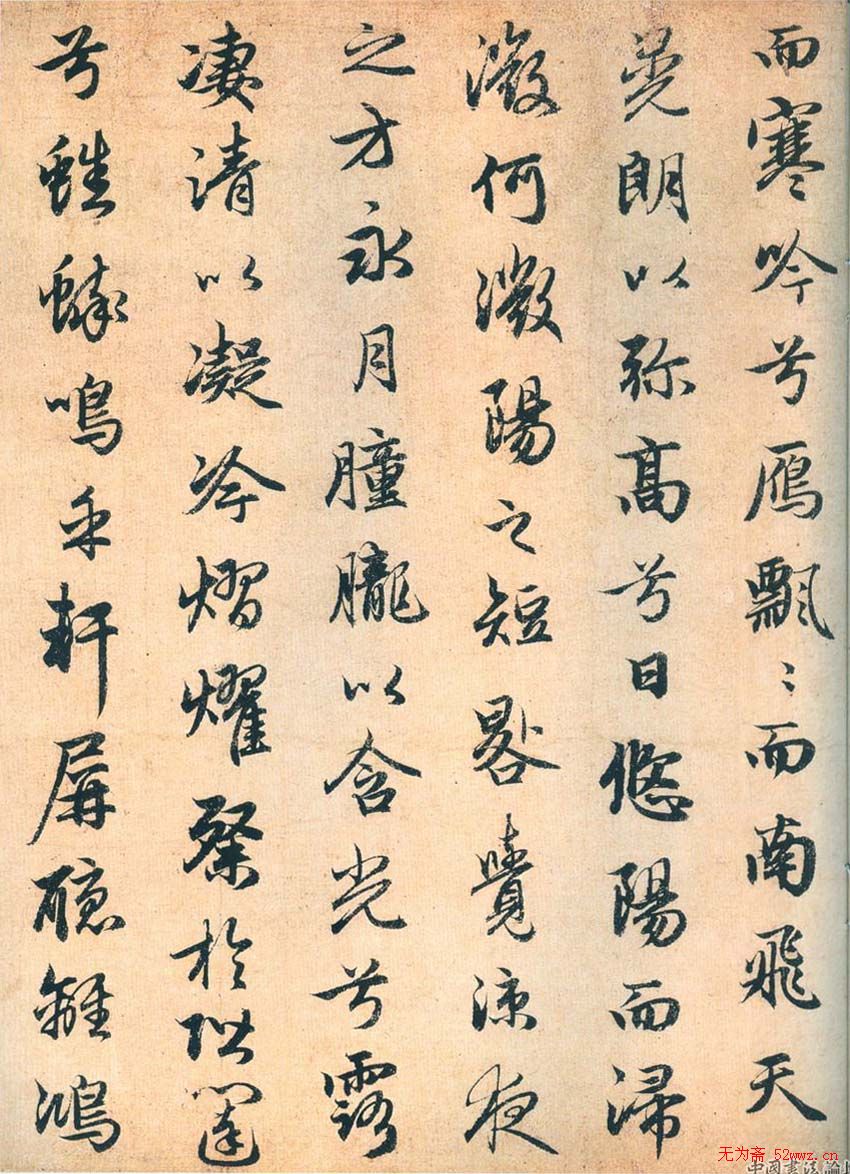 而寒吟兮鴈飄〻而南飛天
晃朗以弥高兮日悠陽而浸
微何微陽之短晷覺涼夜
之方永月朣朧以含光兮露
凄清以凝冷熠燿粲於階闥
兮蟋蟀鳴乎軒屏聽離鴻
无为斋 52wwz.cn